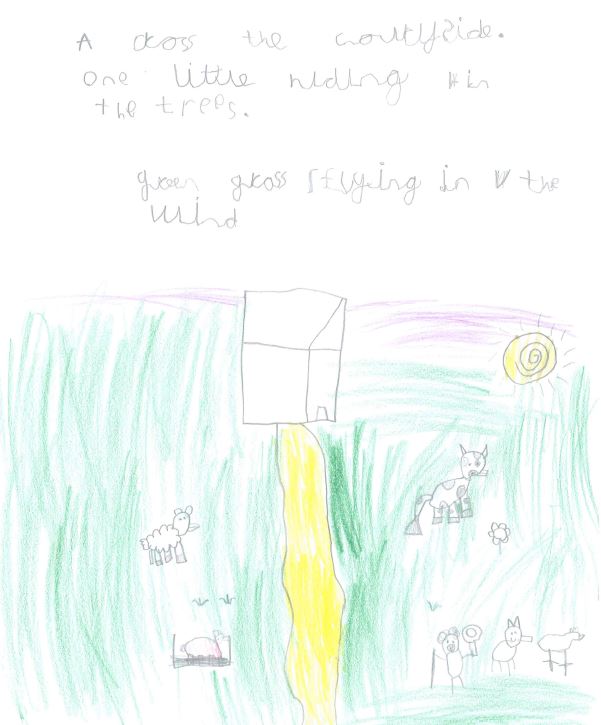 A cross the countrySide.
One little hiding in
the trees.
green grass flying in the
wind